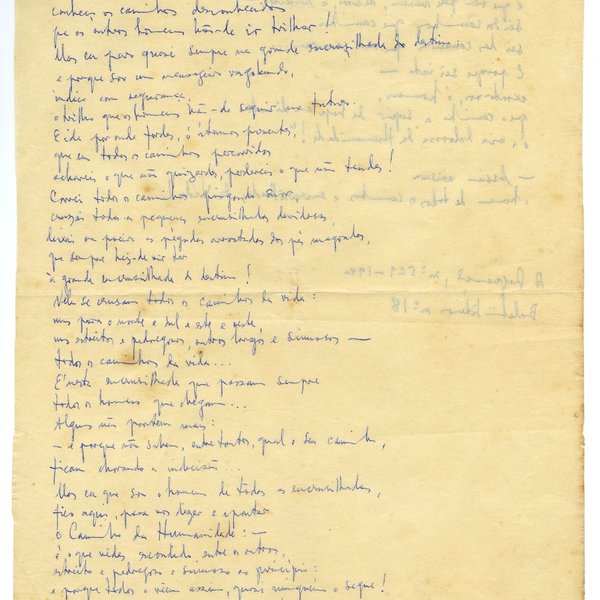 conheço os caminhos desconhecidos
que os outros homens hão-de ir trilhar!
Mas eu paro quase sempre na grande encruzilhada do destino
e porque sou um mensageiro vagabundo,
indico com segurança
o trilho que os homens hão-de seguir no futuro.
E ide por onde fordes, ó átomos presentes,
que em todos os caminhos percorridos
achareis o que não quizerdes, perdereis o que não tendes!
Corri todos os caminhos pingando suor
cruzei todas as pequenas encruzilhadas
deixei na poeira as pègadas dos pés magoados,
que sempre hei-de vir ter
à grande encruzilhada do destino!
Nela se cruzam todos os caminhos da vida:
uns para o norte e sul e este e oeste,
uns estreitos e pedregosos, outros largos e sinuosos —
todos os caminhos da vida...
E nesta encruzilhada que passam sempre
todos os homens que chegam...
Alguns não partem mais:
— e porque não sabem, entre tantos, qual o seu caminho,
ficam chorando a indecisão...
Mas eu que sou o homem de todas as encruzilhadas,
fico aqui, para vos dizer e apontar
o Caminho da Humanidade: —
é o que vêdes escondido entre os outros,
estreito e pedregoso e sinuoso ao princípio:
e porque todos o vêem assim, quasi ninguém o segue!